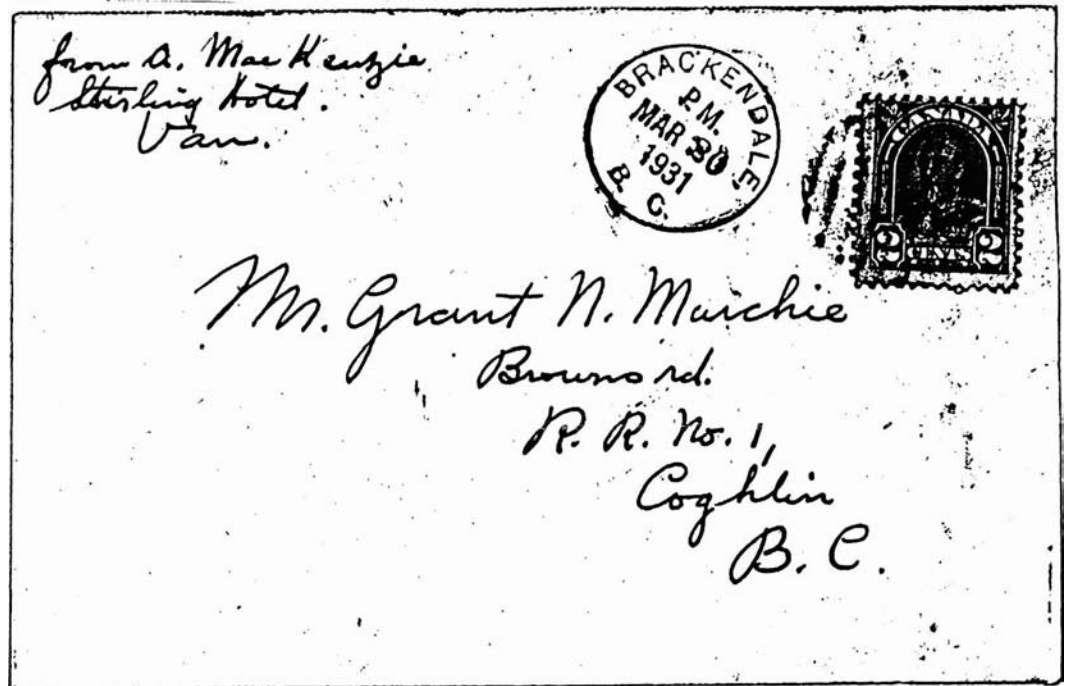 from A. MacKenzie
Stirling Hotel.
Van.
BRACKENDALE
P.M.
MAR 30
1931
B. C.
CANADA
2 CENTS 2
Mr. Grant N. Murchie
Browns rd.
R. R. No. 1,
Coghlin
B. C.